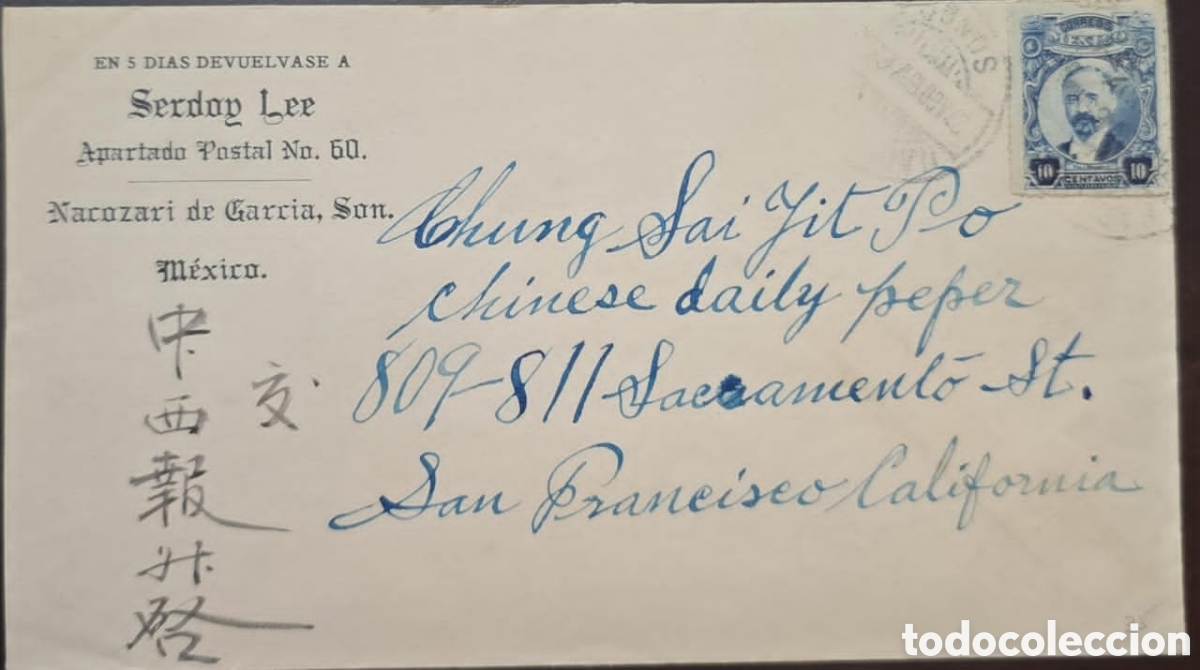 EN 5 DIAS DEVUELVASE A
Serdoy Lee
Apartado Postal No. 60.
Nacozari de Garcia, Son.
México.
Chung Sai Jit Po
chinese daily peper
809-811 Sacramentō St.
San Francisco California
交
中西報升啓
CORREOS
MEXICO
10 CENTAVOS 10
SON
todocoleccion